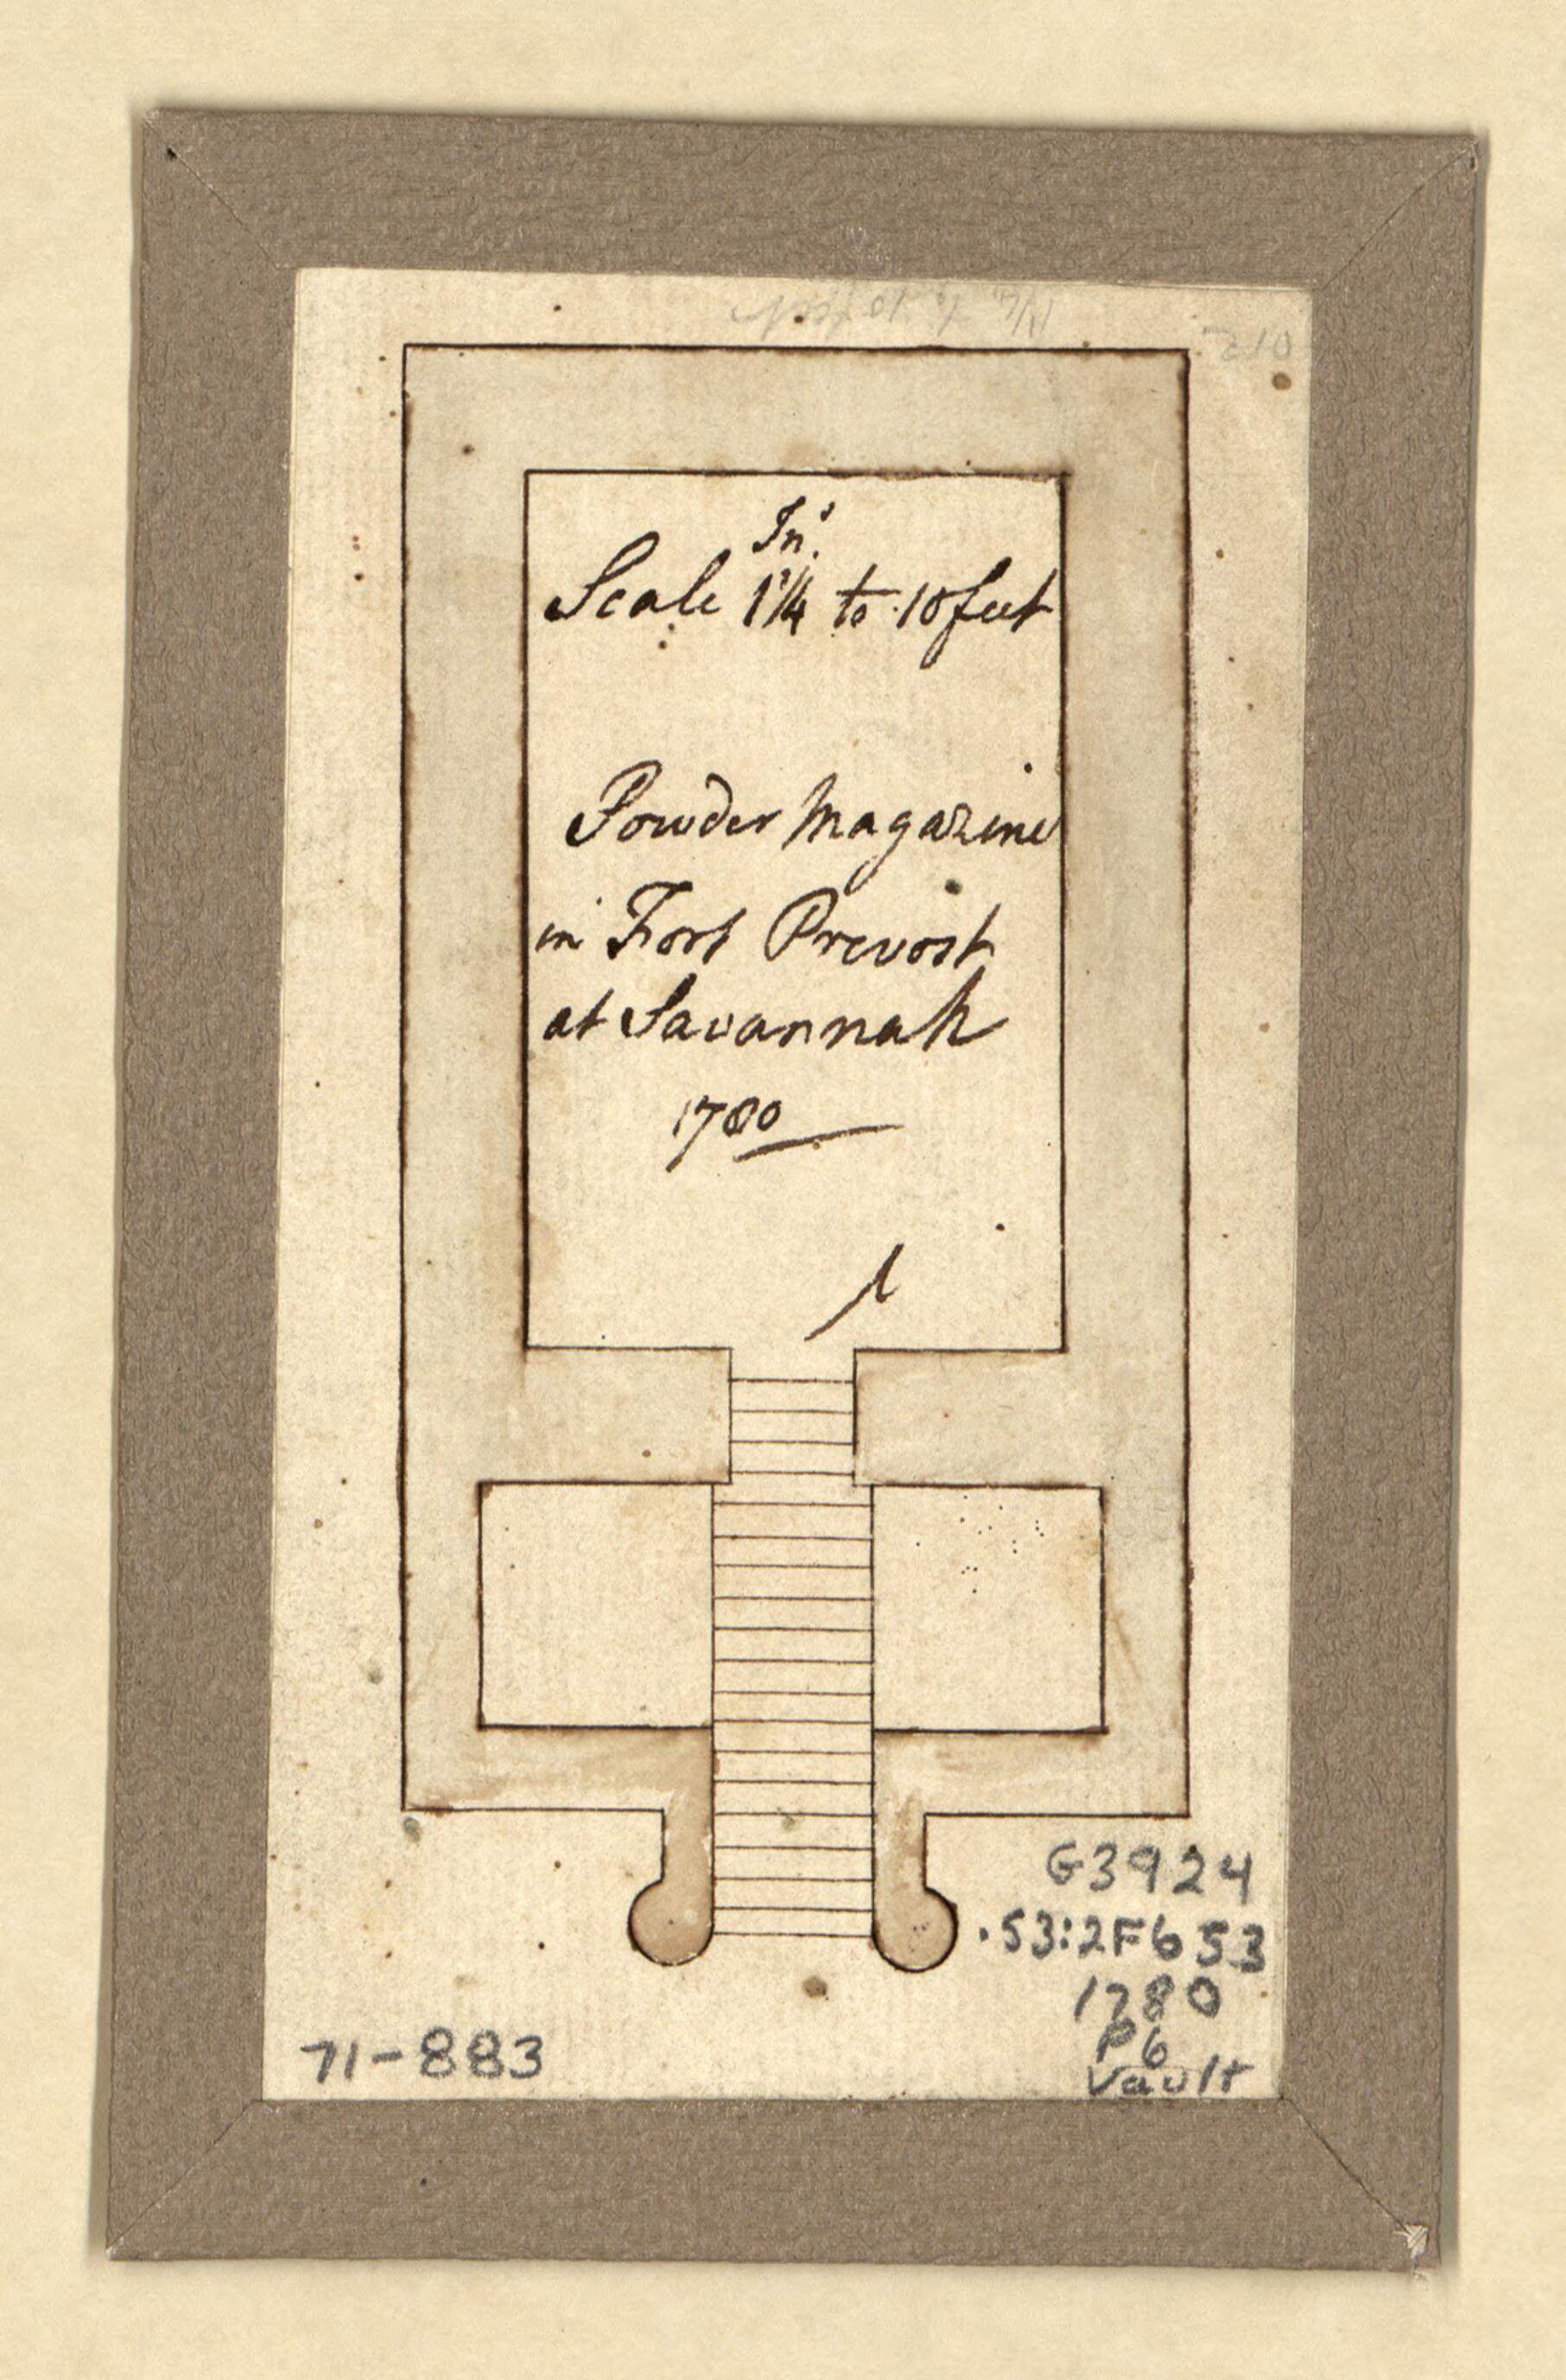 In.s
Scale 1 1/4 to 10 feet
Powder Magazine
in Fort Prevost
at Savannah
1780
G3924
.53:2F653
1780
P6
Vault
71-883